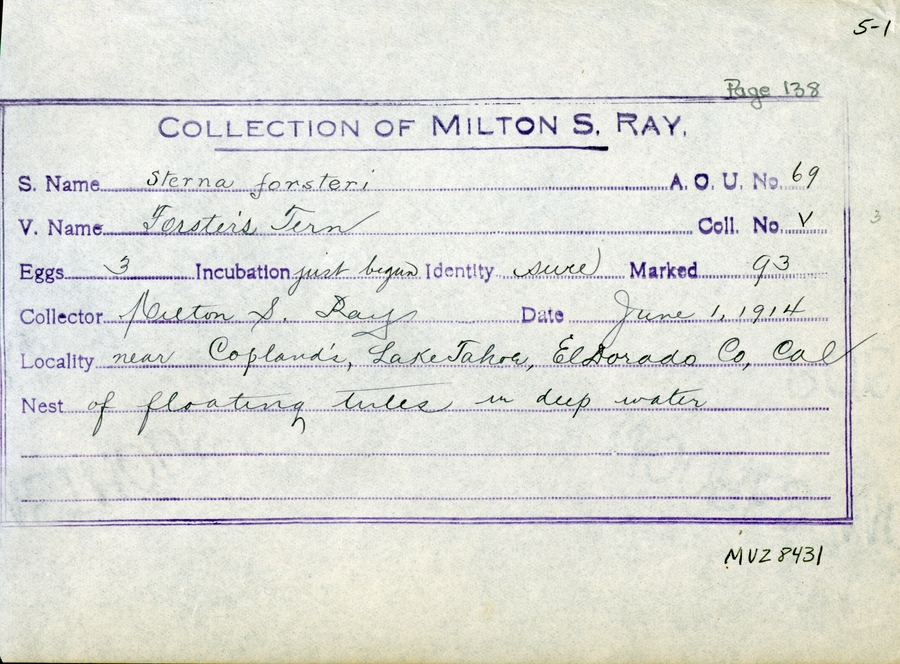 5-1
Page 138
COLLECTION OF MILTON S. RAY.
S. Name Sterna forsteri A. O. U. No. 69
V. Name Forster's Tern Coll. No. V
3
Eggs 3 Incubation just begun Identity sure Marked 93
Collector Milton S. Ray Date June 1, 1914
Locality near Copland's, Lake Tahoe, El Dorado Co, Cal
Nest of floating tules in deep water
MVZ 8431